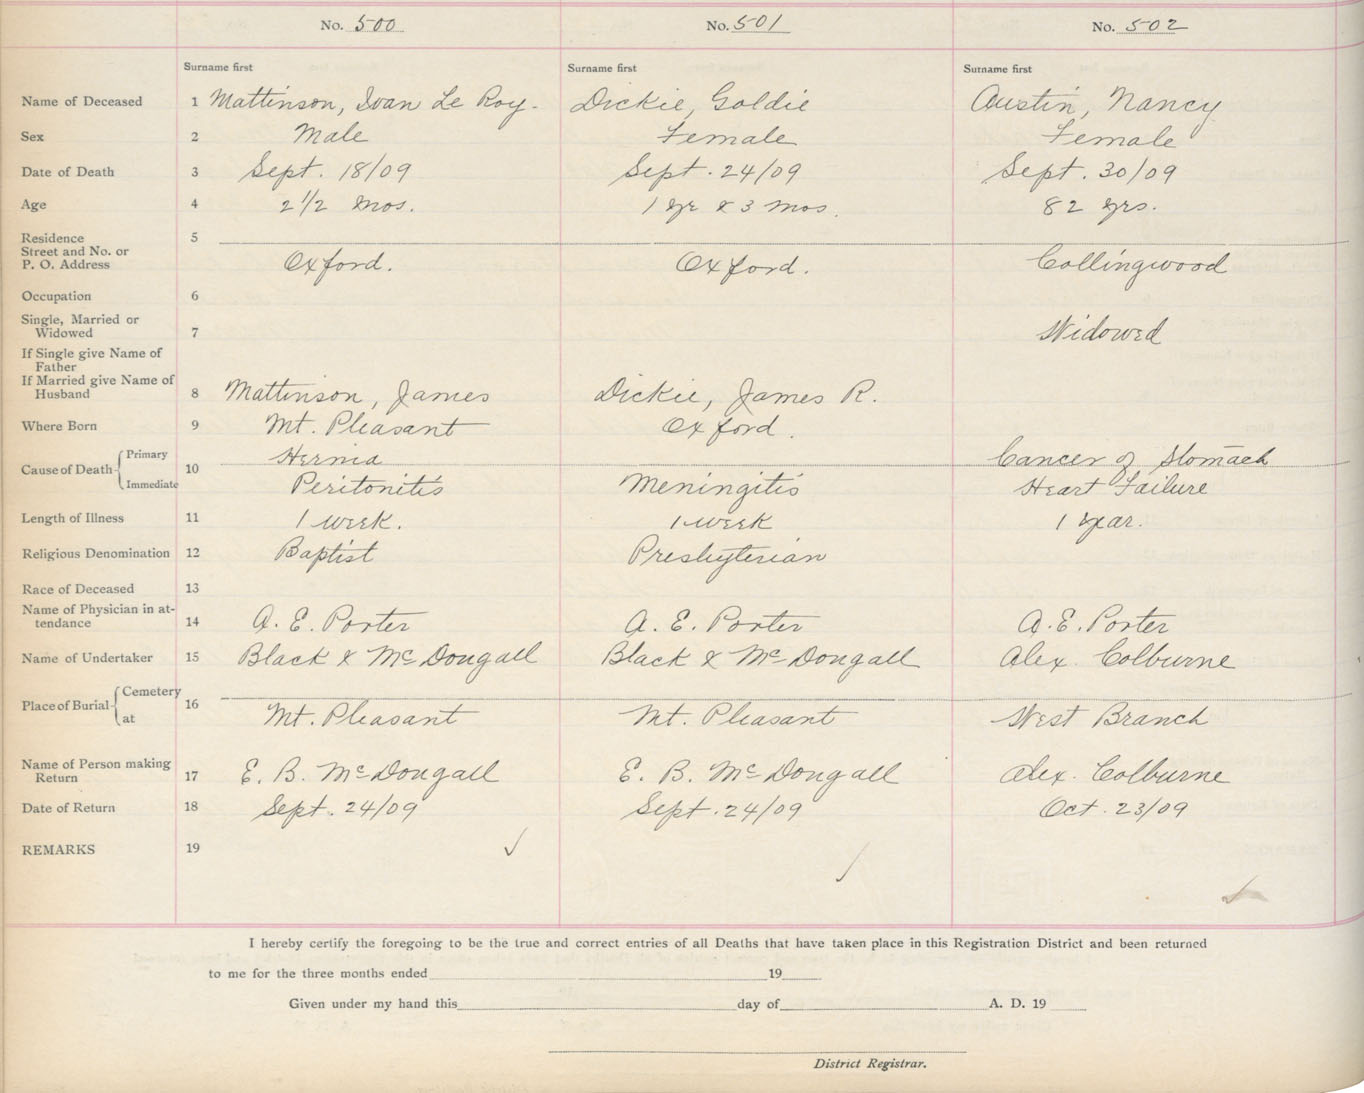 No. 500 No. 501 No. 502
Surname first Surname first Surname first
Name of Deceased 1 Mattinson, Ivan Le Roy. Dickie, Goldie Austin, Nancy
Sex 2 Male Female Female
Date of Death 3 Sept. 18/09 Sept. 24/09 Sept. 30/09
Age 4 2 1/2 mos. 1 yr & 3 mos. 82 yrs.
Residence 5
Street and No. or
P. O. Address Oxford. Oxford. Collingwood
Occupation 6
Single, Married or
Widowed 7 Widowed
If Single give Name of
Father
If Married give Name of
Husband 8 Mattinson, James Dickie, James R.
Where Born 9 Mt. Pleasant Oxford.
Primary Hernia Cancer of Stomach
Cause of Death 10
Immediate Peritonitis Meningitis Heart Failure
Length of Illness 11 1 week. 1 week 1 year.
Religious Denomination 12 Baptist Presbyterian
Race of Deceased 13
Name of Physician in at-
tendance 14 A. E. Porter A. E. Porter A. E. Porter
Name of Undertaker 15 Black & McDougall Black & McDougall Alex. Colburne
Cemetery
Place of Burial 16
at Mt. Pleasant Mt. Pleasant West Branch
Name of Person making
Return 17 E. B. McDougall E. B. McDougall Alex. Colburne
Date of Return 18 Sept. 24/09 Sept. 24/09 Oct. 23/09
REMARKS 19
I hereby certify the foregoing to be the true and correct entries of all Deaths that have taken place in this Registration District and been returned
to me for the three months ended 19
Given under my hand this day of A. D. 19
District Registrar.